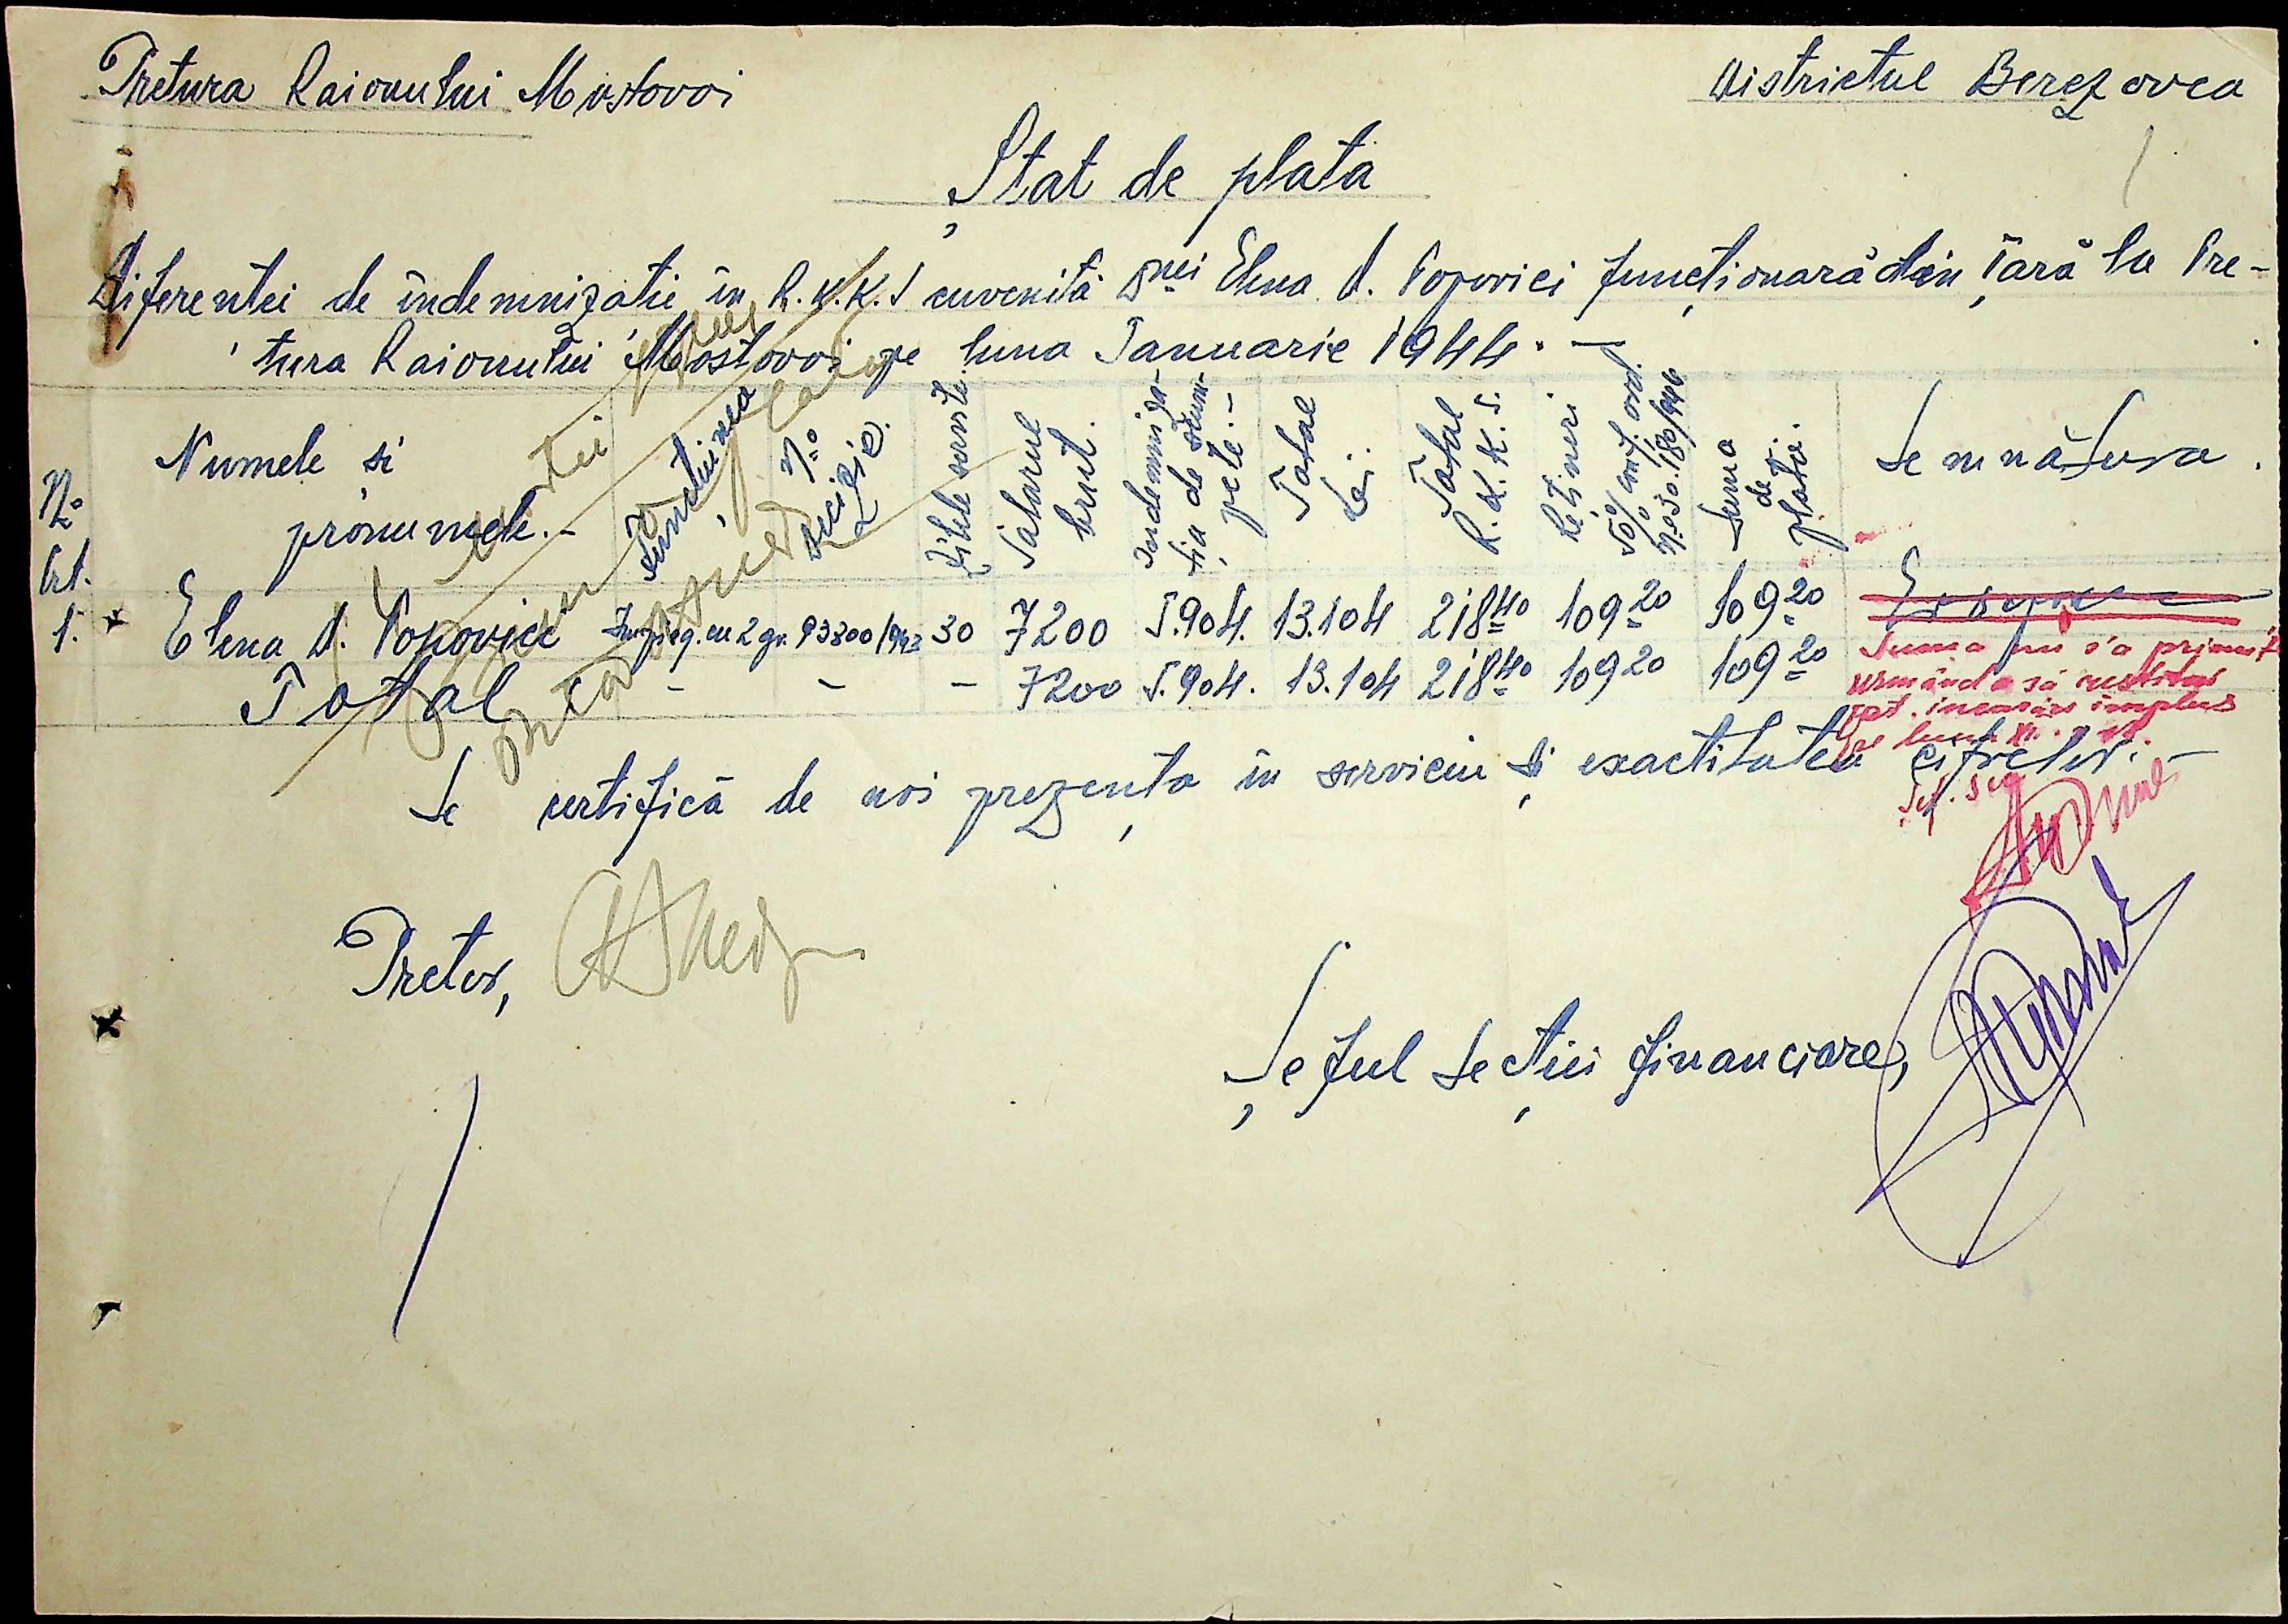 Pretura Raionului Mostovoi
Districtul Berezovca
Ștat de plata
Diferentei de indemnizatie in R.K.K.S cuvenită Dnei Elena D. Popovici funcționară din Țară la Pre-
tura Raionului Mostovoi pe luna Ianuarie 1944. —
No Crt.
Numele si pronumele.-
Functiunea
No decizie.
Zilele servite.
Salarul brut.
Indemnizatia de scumpete.-
Total Lei.
Total R.K.K.S.
Rețineri 50% conf. ord. No 30.180/946
Suma de plată.
Semnătura.
1. Elena D. Popovici Impieg. cu 2 gr. 93300/942 30 7200 5.904. 13.104 218 40 109 20 109 20
Total - - - 7200 5.904. 13.104 218 40 109 20 109 20
Suma nu s'a primit
urmând a să restitui
încasări împlus
pe luna
Se certifică de noi prezența in serviciu și exactitatea cifrelor.-
Șef. Secț
Pretor,
Șeful Secției financiare,